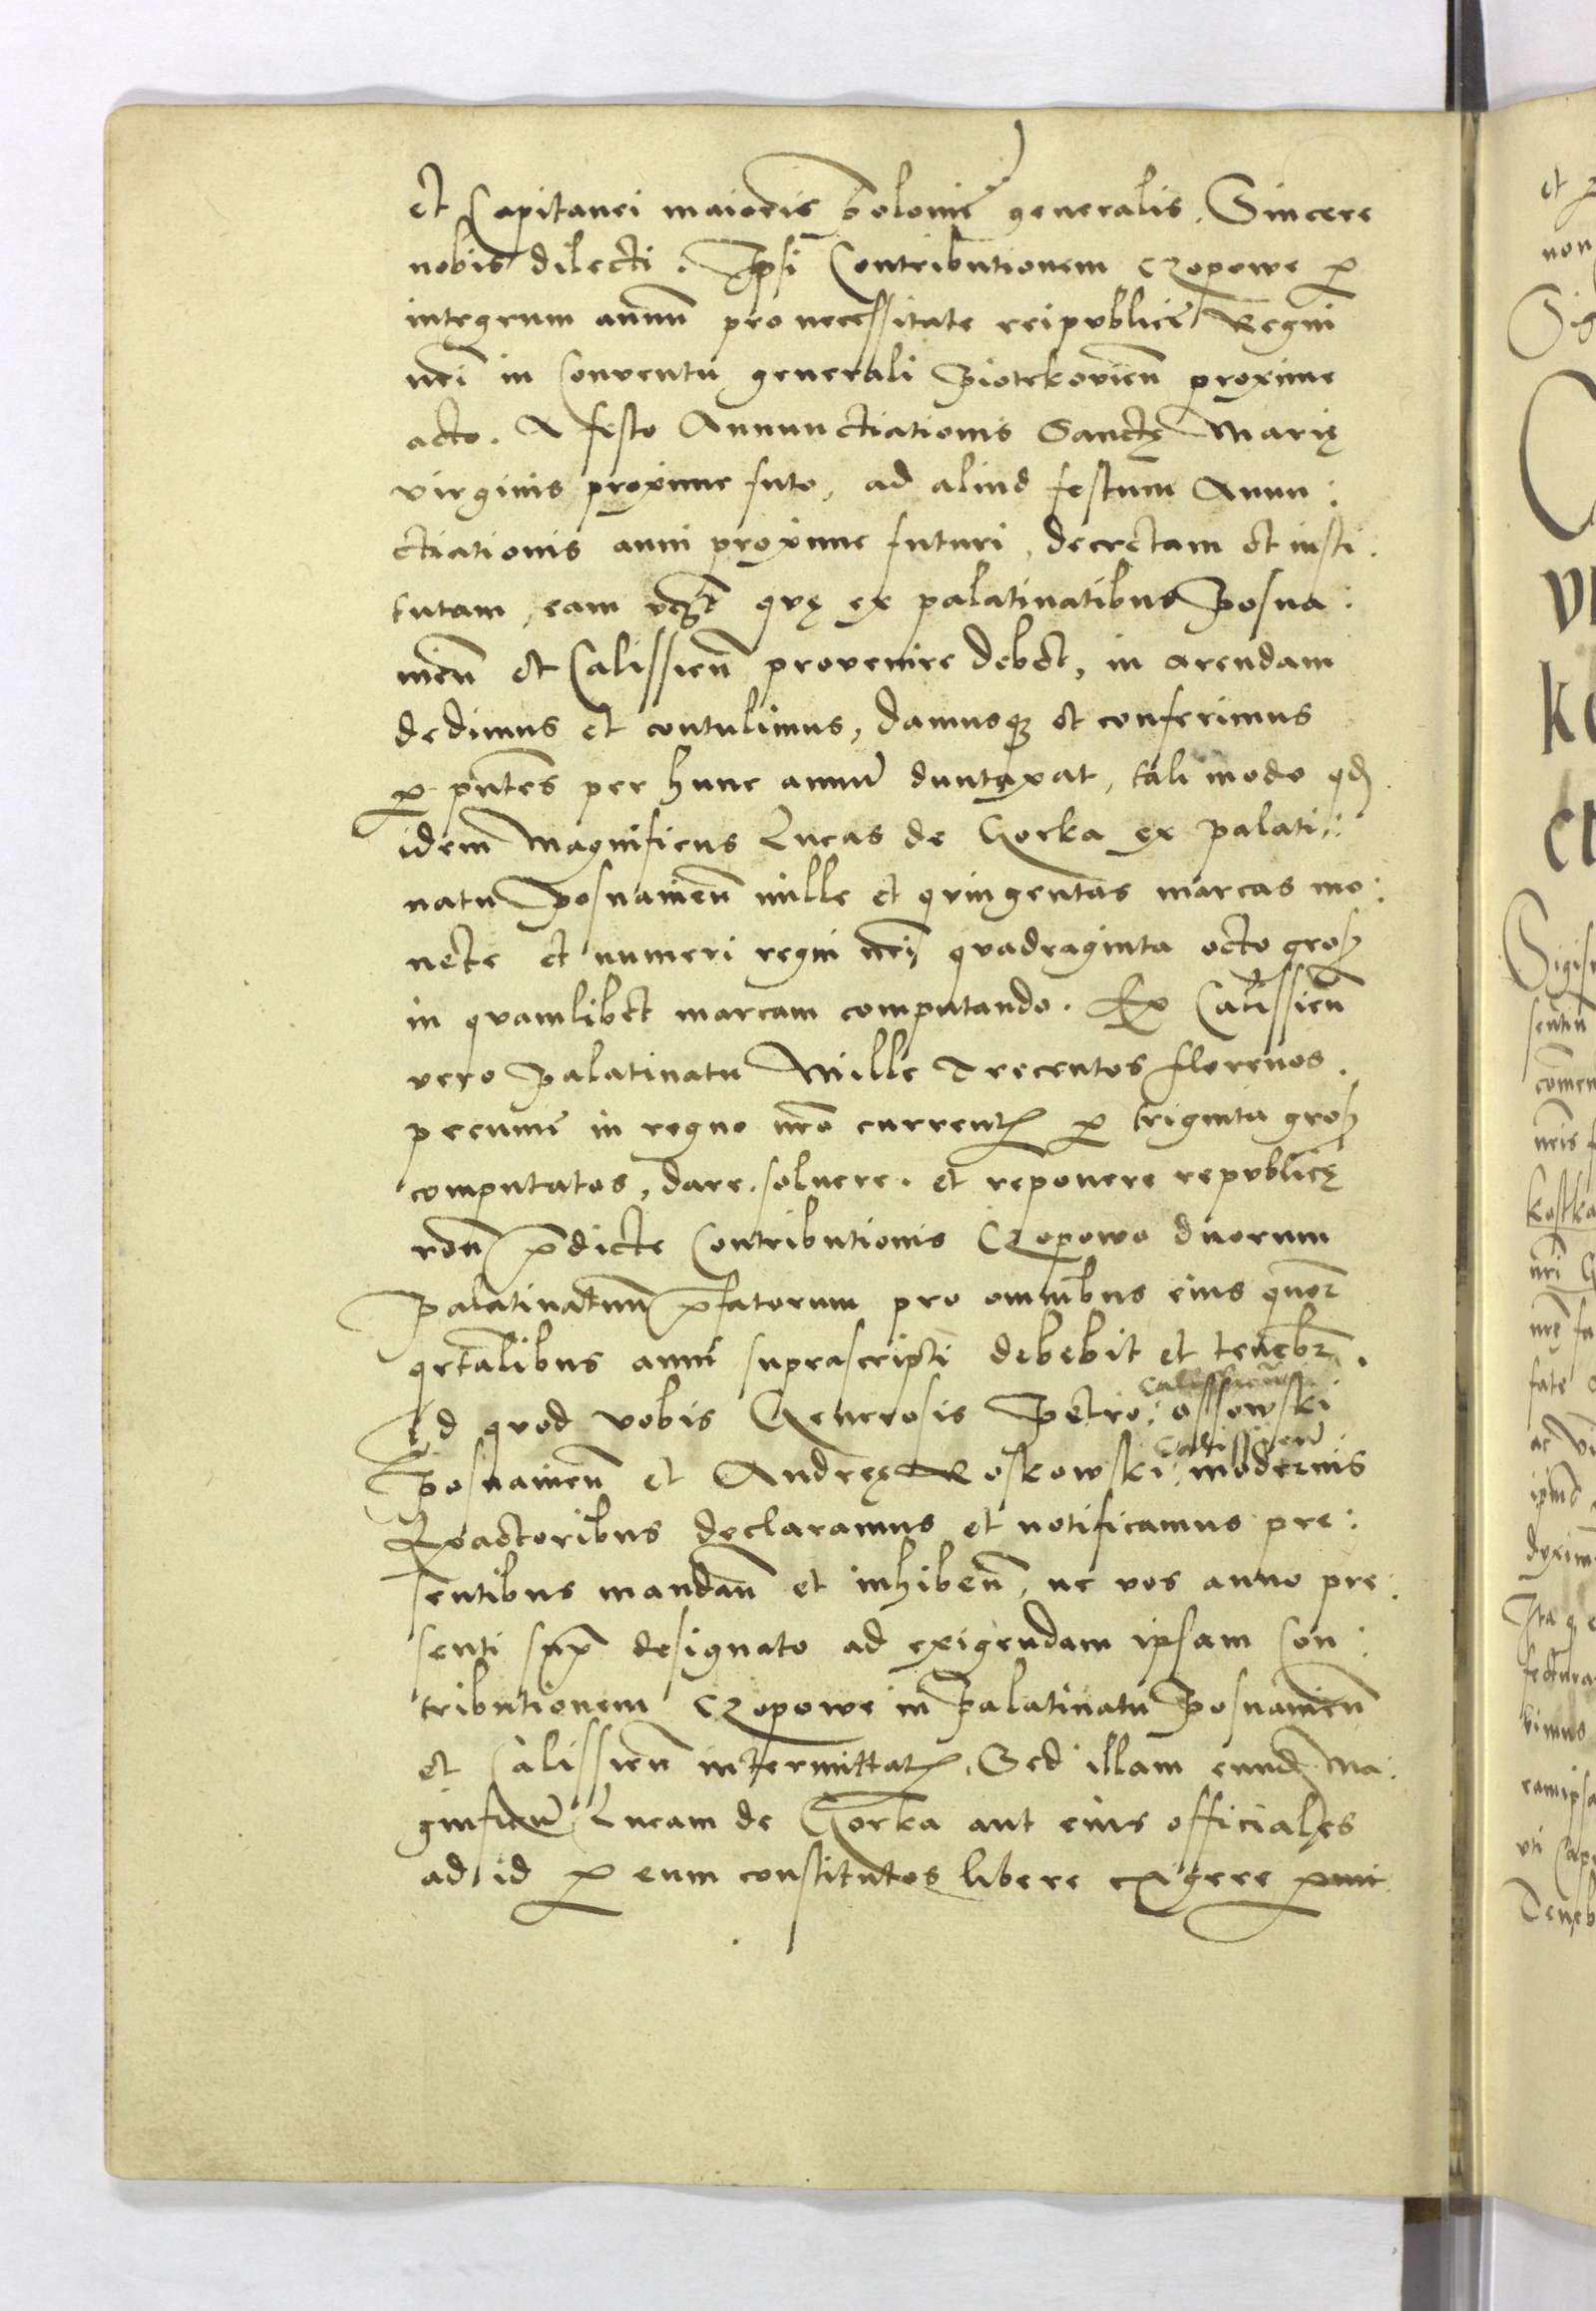 et Capitanei maioris Polonie generalis. Sincere
nobis dilecti. Ipsi Contributionem Czopowe p
integrum annu pro necessitate reipublice Regni
nri in Conventu generali Piotrkovien proxime
acto. A festo Annunctiationis Sanctę Marię
virginis proxime futo, ad aliud festum Annun:
ctiationis anni proxime futuri, decretam et insti:
tutam, eam vczt quę ex palatinatibus Posna:
nien et Calissien provenire debet, in arendam
dedimus et contulimus, damusq et conferimus
p pntes per hunc annu duntaxat, tali modo qd
idem Magnificus Lucas de Gorka ex palati:
natu Posnanien mille et quingentas marcas mo:
nete et numeri regni nri quadraginta octo gross
in quamlibet marcam computando. Ex Calissien
vero Palatinatu Mille Trecentos florenos
pecunie in regno nro current p triginta gross
computatos, dare. solvere. et reponere republicę
ron pdicte Contributionis Czopowo duorum
Palatinatuum pfatorum pro omnibus eius quor
qrtalibus anni suprascripti debebit et tenebr.
Id quod vobis Generosis Petro: Ossowski
Posnanien et Andreę Roskowski: Calissien modernis
Exactoribus declaramus et notificamus pre:
sentibus mandan et inhiben, ne vos anno pre:
senti sup designato ad exigendam ipsam Con:
tributionem Czopowe in Palatinatu Posnanien
et Calissien intermittat. Sed illam eund Ma:
gnificu Lucam de Gorka aut eius officiales
ad id p eum constitutos libere exigere pmi